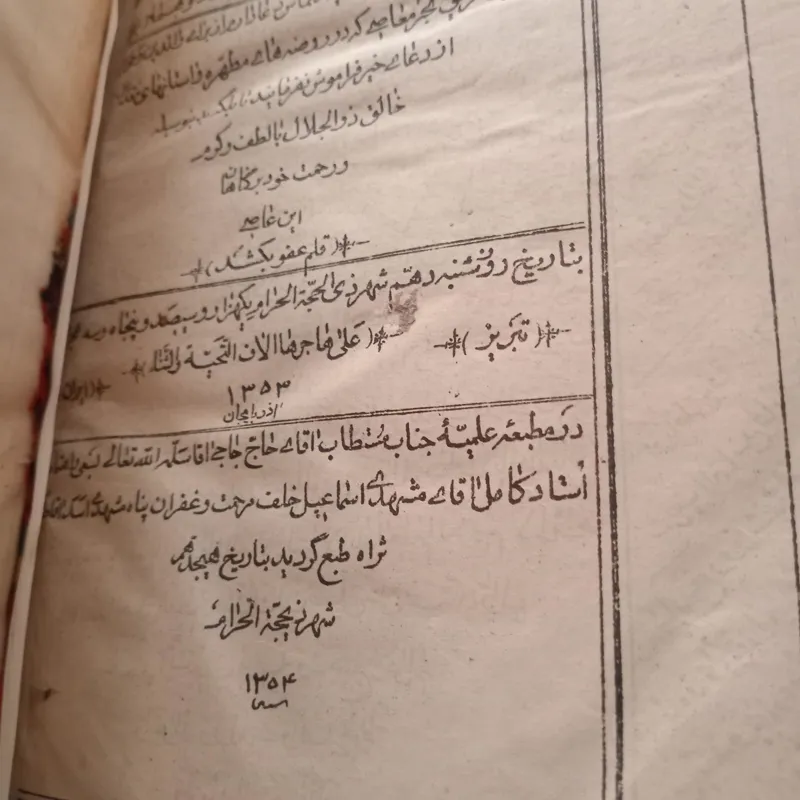 از دعاے خیر فراموش نفرمایند
خالق ذوالجلال بالطف و کرم
و رحمت خود برگناهان
این عاصے
(قلم عفو بکشد)
بتاریخ روز شنبه دهم شهر ذی الحجة الحرام یکهزار و سیصد و پنجاه و سه
(تبریز) (علی هاجرها الاف التحیة والثناء) (ایران)
۱۳۵۳
اذربایجان
در مطبعه علمیهٔ جناب مستطاب اقاے حاج حاجے اقا سلمه الله تعالے بسعی
استاد کامل اقاے مشهدے اسماعیل خلف مرحمت و غفران پناه مشهدے اسد
ثراه طبع گردید بتاریخ هیجدهم
شهر ذیحجة الحرام
۱۳۵۴